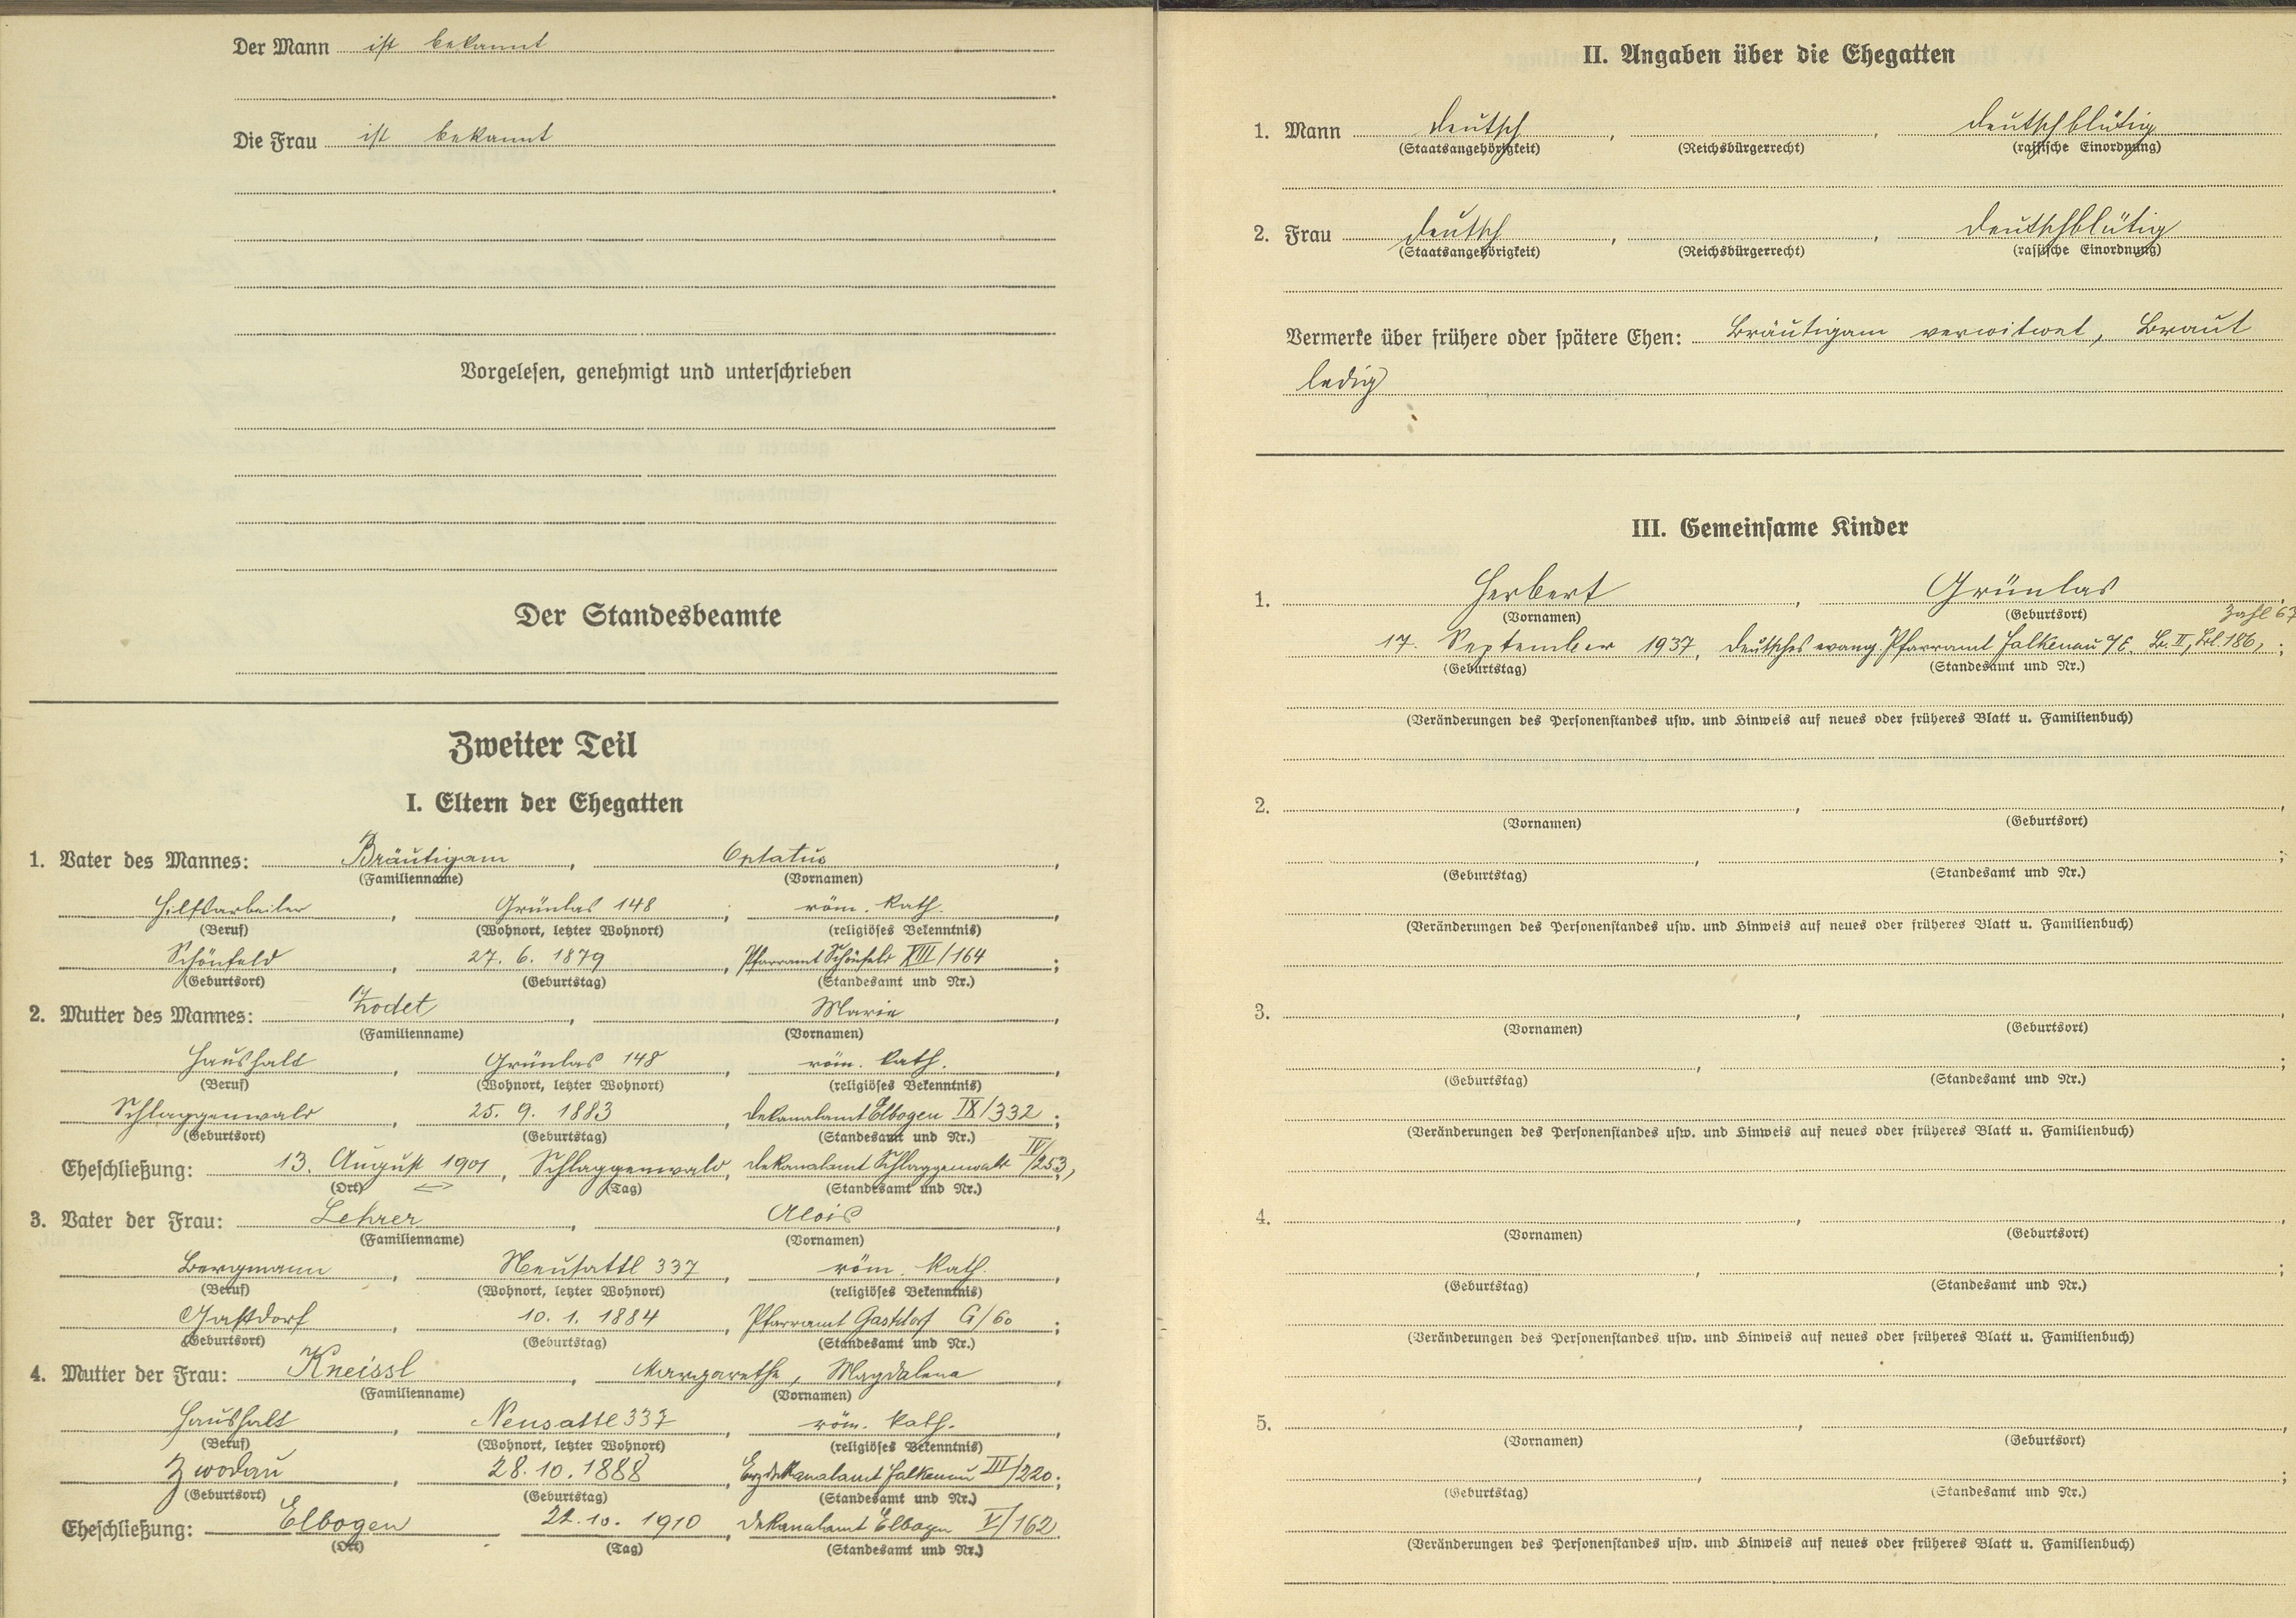 Der Mann ist bekannt
Die Frau ist bekannt
Vorgelesen, genehmigt und unterschrieben
Der Standesbeamte
Zweiter Teil
I. Eltern der Ehegatten
1. Vater des Mannes: Bräutigam, Optatus,
(Familienname) (Vornamen)
Hilfsarbeiter, Grünlas 148; röm. kath.,
(Beruf) (Wohnort, letzter Wohnort) (religiöses Bekenntnis)
Schönfeld, 27. 6. 1879, Pfarramt Schönfeld XIII/164;
(Geburtsort) (Geburtstag) (Standesamt und Nr.)
2. Mutter des Mannes: Zodet, Marie,
(Familienname) (Vornamen)
Haushalt, Grünlas 148, röm. kath.,
(Beruf) (Wohnort, letzter Wohnort) (religiöses Bekenntnis)
Schlaggenwald, 25. 9. 1883, Dekanalamt Elbogen IX/332;
(Geburtsort) (Geburtstag) (Standesamt und Nr.)
Eheschließung: 13. August 1901, Schlaggenwald, Dekanalamt Schlaggenwald IV/253,
(Ort) (Tag) (Standesamt und Nr.)
3. Vater der Frau: Lehrer, Alois,
(Familienname) (Vornamen)
Bergmann, Neusattl 337, röm. kath.,
(Beruf) (Wohnort, letzter Wohnort) (religiöses Bekenntnis)
Gastdorf, 10. 1. 1884, Pfarramt Gastdorf G/60;
(Geburtsort) (Geburtstag) (Standesamt und Nr.)
4. Mutter der Frau: Kneissl, Margarethe, Magdalena,
(Familienname) (Vornamen)
Haushalt, Neusattl 337, röm. kath.,
(Beruf) (Wohnort, letzter Wohnort) (religiöses Bekenntnis)
Zwodau, 28. 10. 1888, Erzdekanalamt Falkenau III/220;
(Geburtsort) (Geburtstag) (Standesamt und Nr.)
Eheschließung: Elbogen 22. 10. 1910, Dekanalamt Elbogen V/162.
(Ort) (Tag) (Standesamt und Nr.)
II. Angaben über die Ehegatten
1. Mann deutsch, , deutschblütig
(Staatsangehörigkeit) (Reichsbürgerrecht) (rassische Einordnung)
2. Frau deutsch, , deutschblütig
(Staatsangehörigkeit) (Reichsbürgerrecht) (rassische Einordnung)
Vermerke über frühere oder spätere Ehen: Bräutigam verwitwet, Braut
ledig
III. Gemeinsame Kinder
1. Herbert, Grünlas,
(Vornamen) (Geburtsort) Zahl 67
17. September 1937, deutsches evang. Pfarramt Falkenau a/E. B. II, Bl. 186,;
(Geburtstag) (Standesamt und Nr.)
(Veränderungen des Personenstandes usw. und Hinweis auf neues oder früheres Blatt u. Familienbuch)
2. , ,
(Vornamen) (Geburtsort)
, ;
(Geburtstag) (Standesamt und Nr.)
(Veränderungen des Personenstandes usw. und Hinweis auf neues oder früheres Blatt u. Familienbuch)
3. , ,
(Vornamen) (Geburtsort)
, ;
(Geburtstag) (Standesamt und Nr.)
(Veränderungen des Personenstandes usw. und Hinweis auf neues oder früheres Blatt u. Familienbuch)
4. , ,
(Vornamen) (Geburtsort)
, ;
(Geburtstag) (Standesamt und Nr.)
(Veränderungen des Personenstandes usw. und Hinweis auf neues oder früheres Blatt u. Familienbuch)
5. , ,
(Vornamen) (Geburtsort)
, ;
(Geburtstag) (Standesamt und Nr.)
(Veränderungen des Personenstandes usw. und Hinweis auf neues oder früheres Blatt u. Familienbuch)